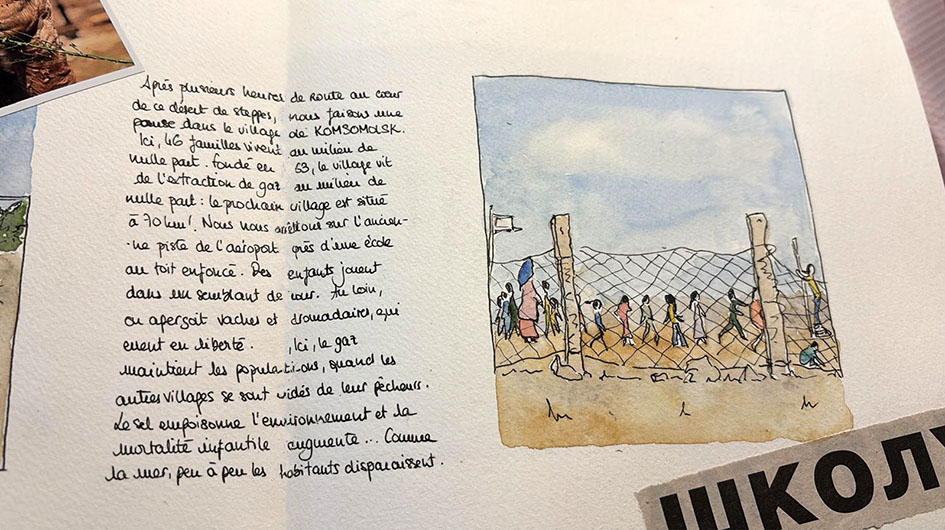 Après plusieurs heures de route au cœur
de ce désert de steppes, nous faisons une
pause dans le village de KOMSOMOLSK.
Ici, 46 familles vivent au milieu de
nulle part. Fondé en 53, le village vit
de l'extraction de gaz au milieu de
nulle part : le prochain village est situé
à 70 km ! Nous nous arrêtons sur l'ancien-
-ne piste de l'aéroport près d'une école
au toit enfoncé. Des enfants jouent
dans un semblant de cour. Au loin,
on aperçoit vaches et dromadaires, qui
errent en liberté. Ici, le gaz
maintient les populati-ons, quand les
autres villages se sont vidés de leur pêcheurs.
Le sel empoisonne l'environnement et la
mortalité infantile augmente... Comme
la mer, peu à peu les habitants disparaissent.
ШКОЛУ